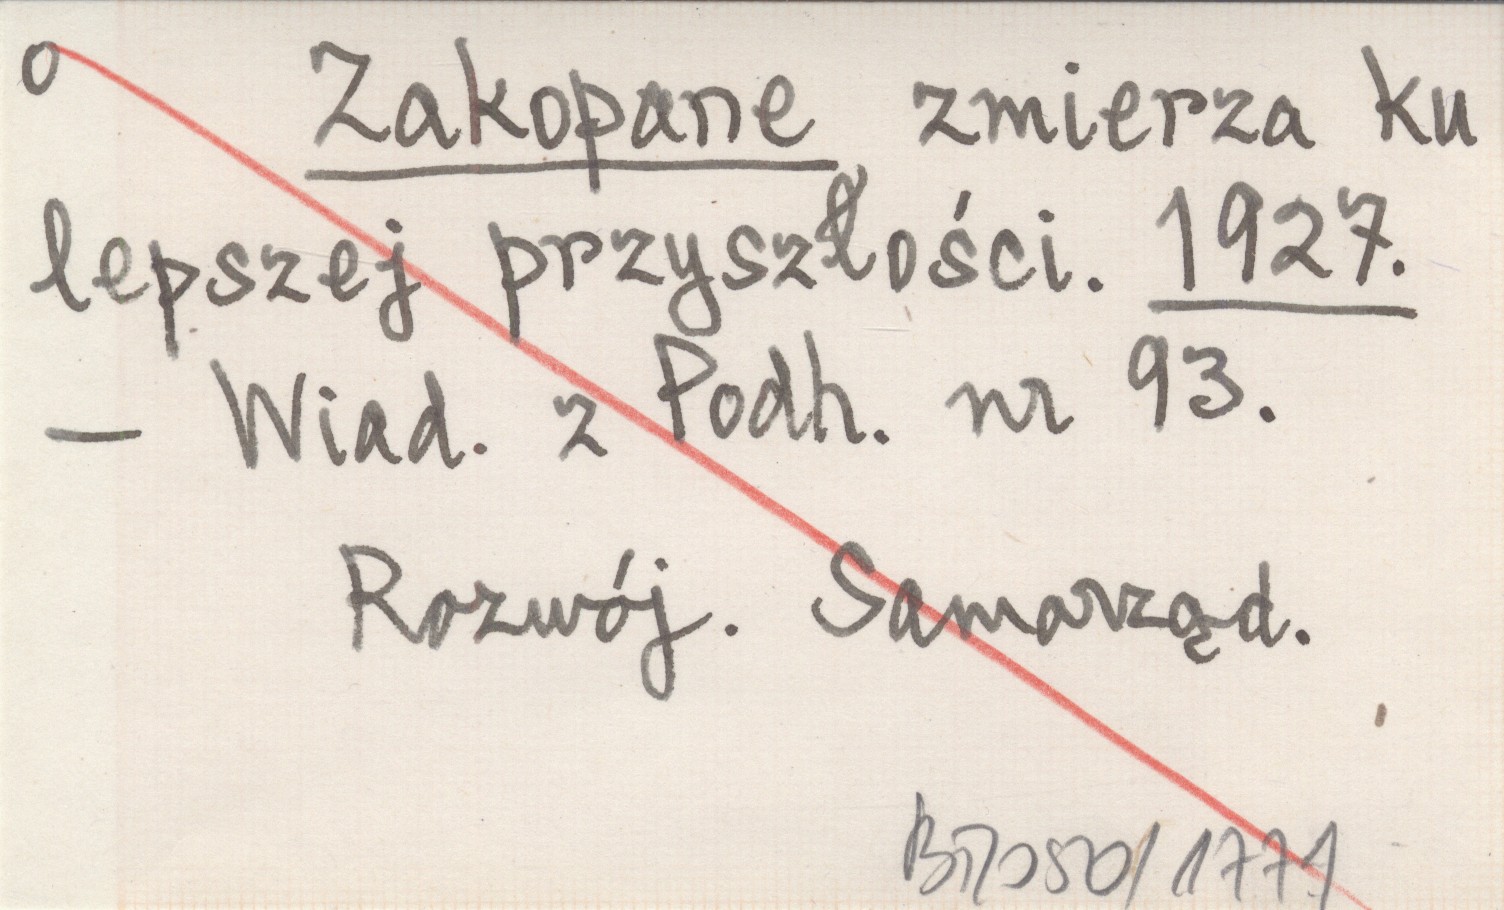 o Zakopane zmierza ku
lepszej przyszłości. 1927.
— Wiad. z Podh. nr 93.
Rozwój. Samorząd.